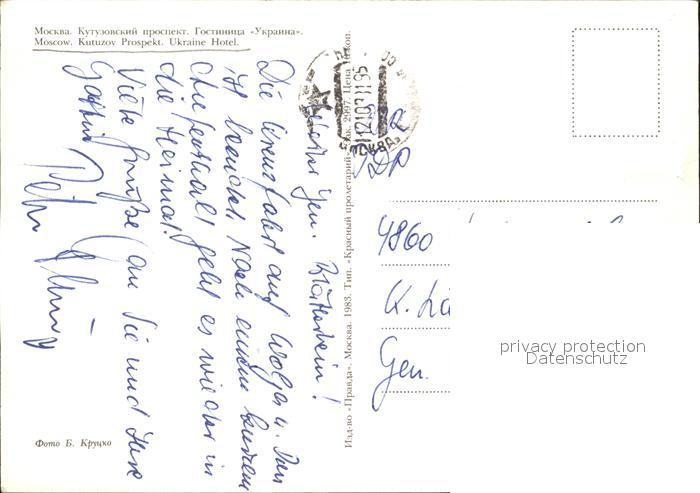 Москва. Кутузовский проспект. Гостиница «Украина».
Moscow. Kutuzov Prospekt. Ukraine Hotel.
Gen.
Die auf Wolga u. Don
ist beendet. Nach einem kurzen
Aufenthalt geht es wieder in
die Heimat!
Viele Grüße an Sie und Ihre
Gattin
Peter
Фото Б. Круцко
Изд-во «Правда». Москва. 1983. Тип. «Красный пролетарий». Зак. 2997. Цена коп.
МОСКВА
4860
K.
Gen.
privacy protection
Datenschutz